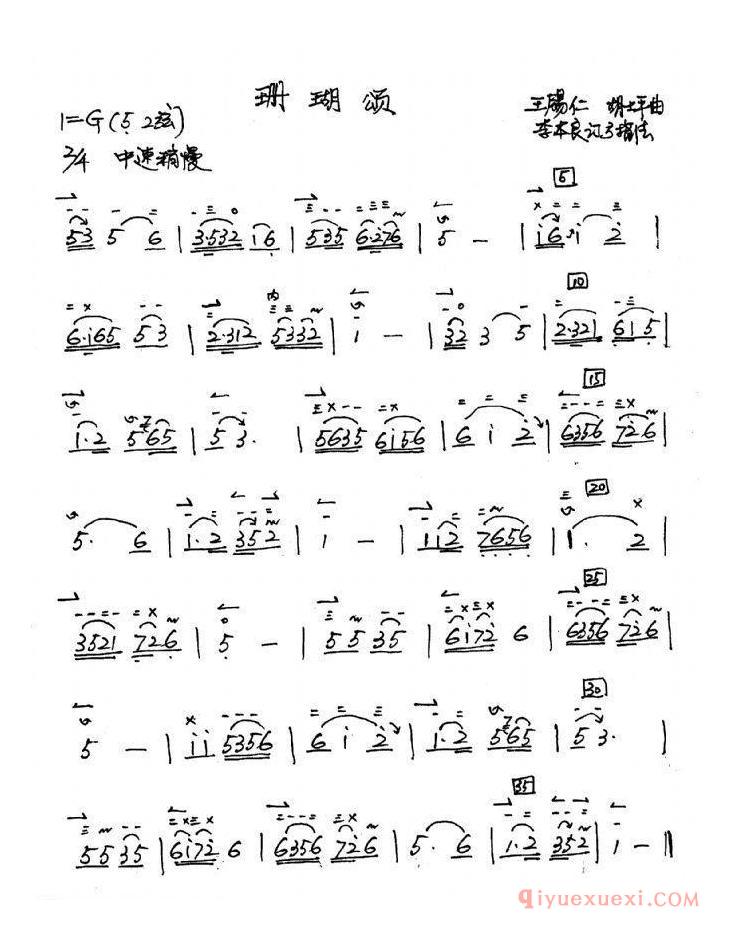 珊瑚颂
1=G(5 2弦)
王锡仁 胡士平曲
李本良记弓指法
2/4 中速稍慢
53 5 6 | 3·532 i6 | 535 6·276 | 5 – | i6·i 2 |
6·i65 53 | 2·312 5332 | i – | 32 3 5 | 2·321 6i5 |
1·2 565 | 5 3· | 5635 6i56 | 6 i 2 | 6356 726 |
5· 6 | 1·2 352 | i – | 112 7656 | 1· 2 |
3521 726 | 5 – | 55 35 | 6i72 6 | 6356 726 |
5 – | ii 5356 | 6 i 2 | 1·2 565 | 5 3· |
55 35 | 6i72 6 | 6356 726 | 5· 6 | 1·2 352 | i – ‖
5
10
15
20
25
30
35
内
qiyuexuexi.com